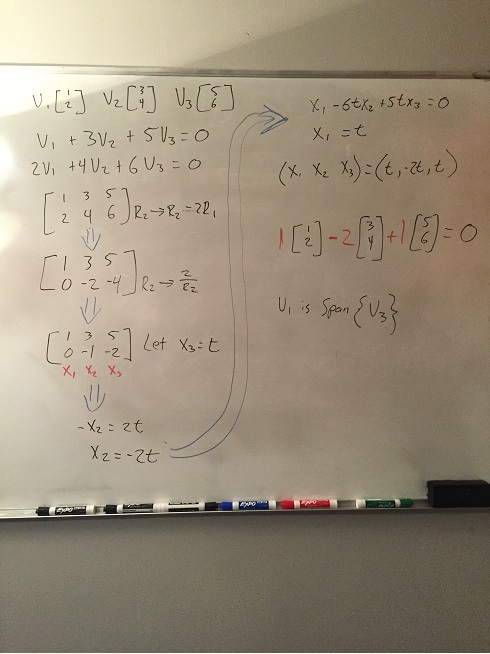 V₁ [1 2] V₂ [3 4] V₃ [5 6]
V₁ + 3V₂ + 5V₃ = 0
2V₁ + 4V₂ + 6V₃ = 0
[1 3 5
2 4 6] R₂ → R₂ = 2R₁
[1 3 5
0 -2 -4] R₂ → 2/R₂
[1 3 5
0 -1 -2] Let X₃ = t
X₁ X₂ X₃
-X₂ = 2t
X₂ = -2t
X₁ - 6tx₂ + 5tx₃ = 0
X₁ = t
(X₁ X₂ X₃) = (t, -2t, t)
1 [1 2] - 2 [3 4] + 1 [5 6] = 0
U₁ is Span {U₃}